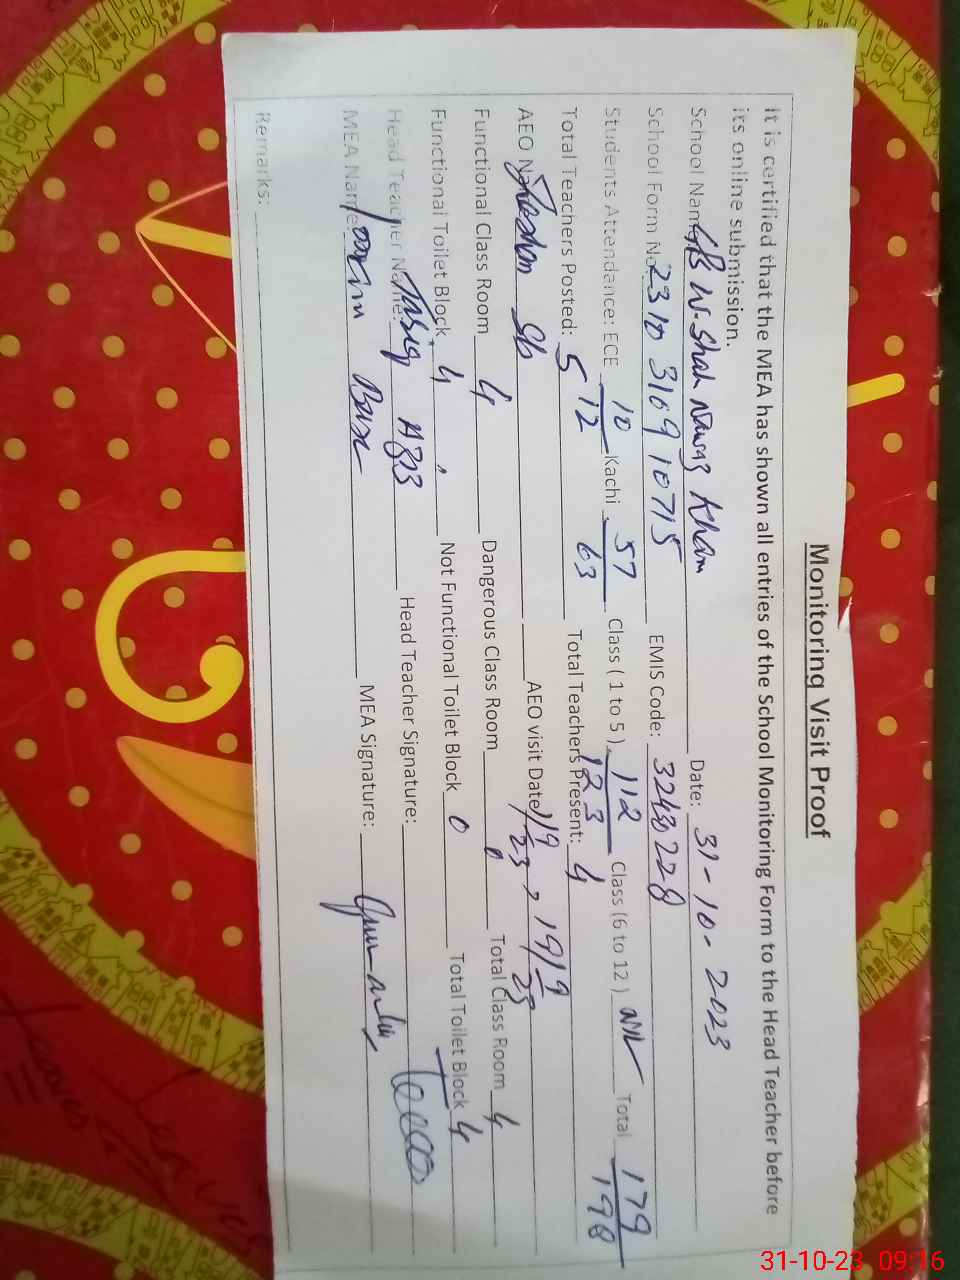 Monitoring Visit Proof
It is certified that the MEA has shown all entries of the School Monitoring Form to the Head Teacher before
its online submission.
School Name: W. Shah Nawaz Kham Date: 31-10-2023
School Form No. 2310 3109 10715 EMIS Code:
Students Attendance: ECE 10/12 Kachi 57/63 Class ( 1 to 5 ) 112/123 Class (6 to 12 ) Total 179/198
Total Teachers Posted: 5 Total Teachers Present: 4
AEO Name: Sb AEO visit Date 19/23
Functional Class Room 4 Dangerous Class Room 0 Total Class Room 4
Functional Toilet Block 4 Not Functional Toilet Block 0 Total Toilet Block 4
Head Teacher Name: Tariq Aziz Head Teacher Signature:
MEA Name: Bux MEA Signature:
Remarks:
31-10-23 09:16